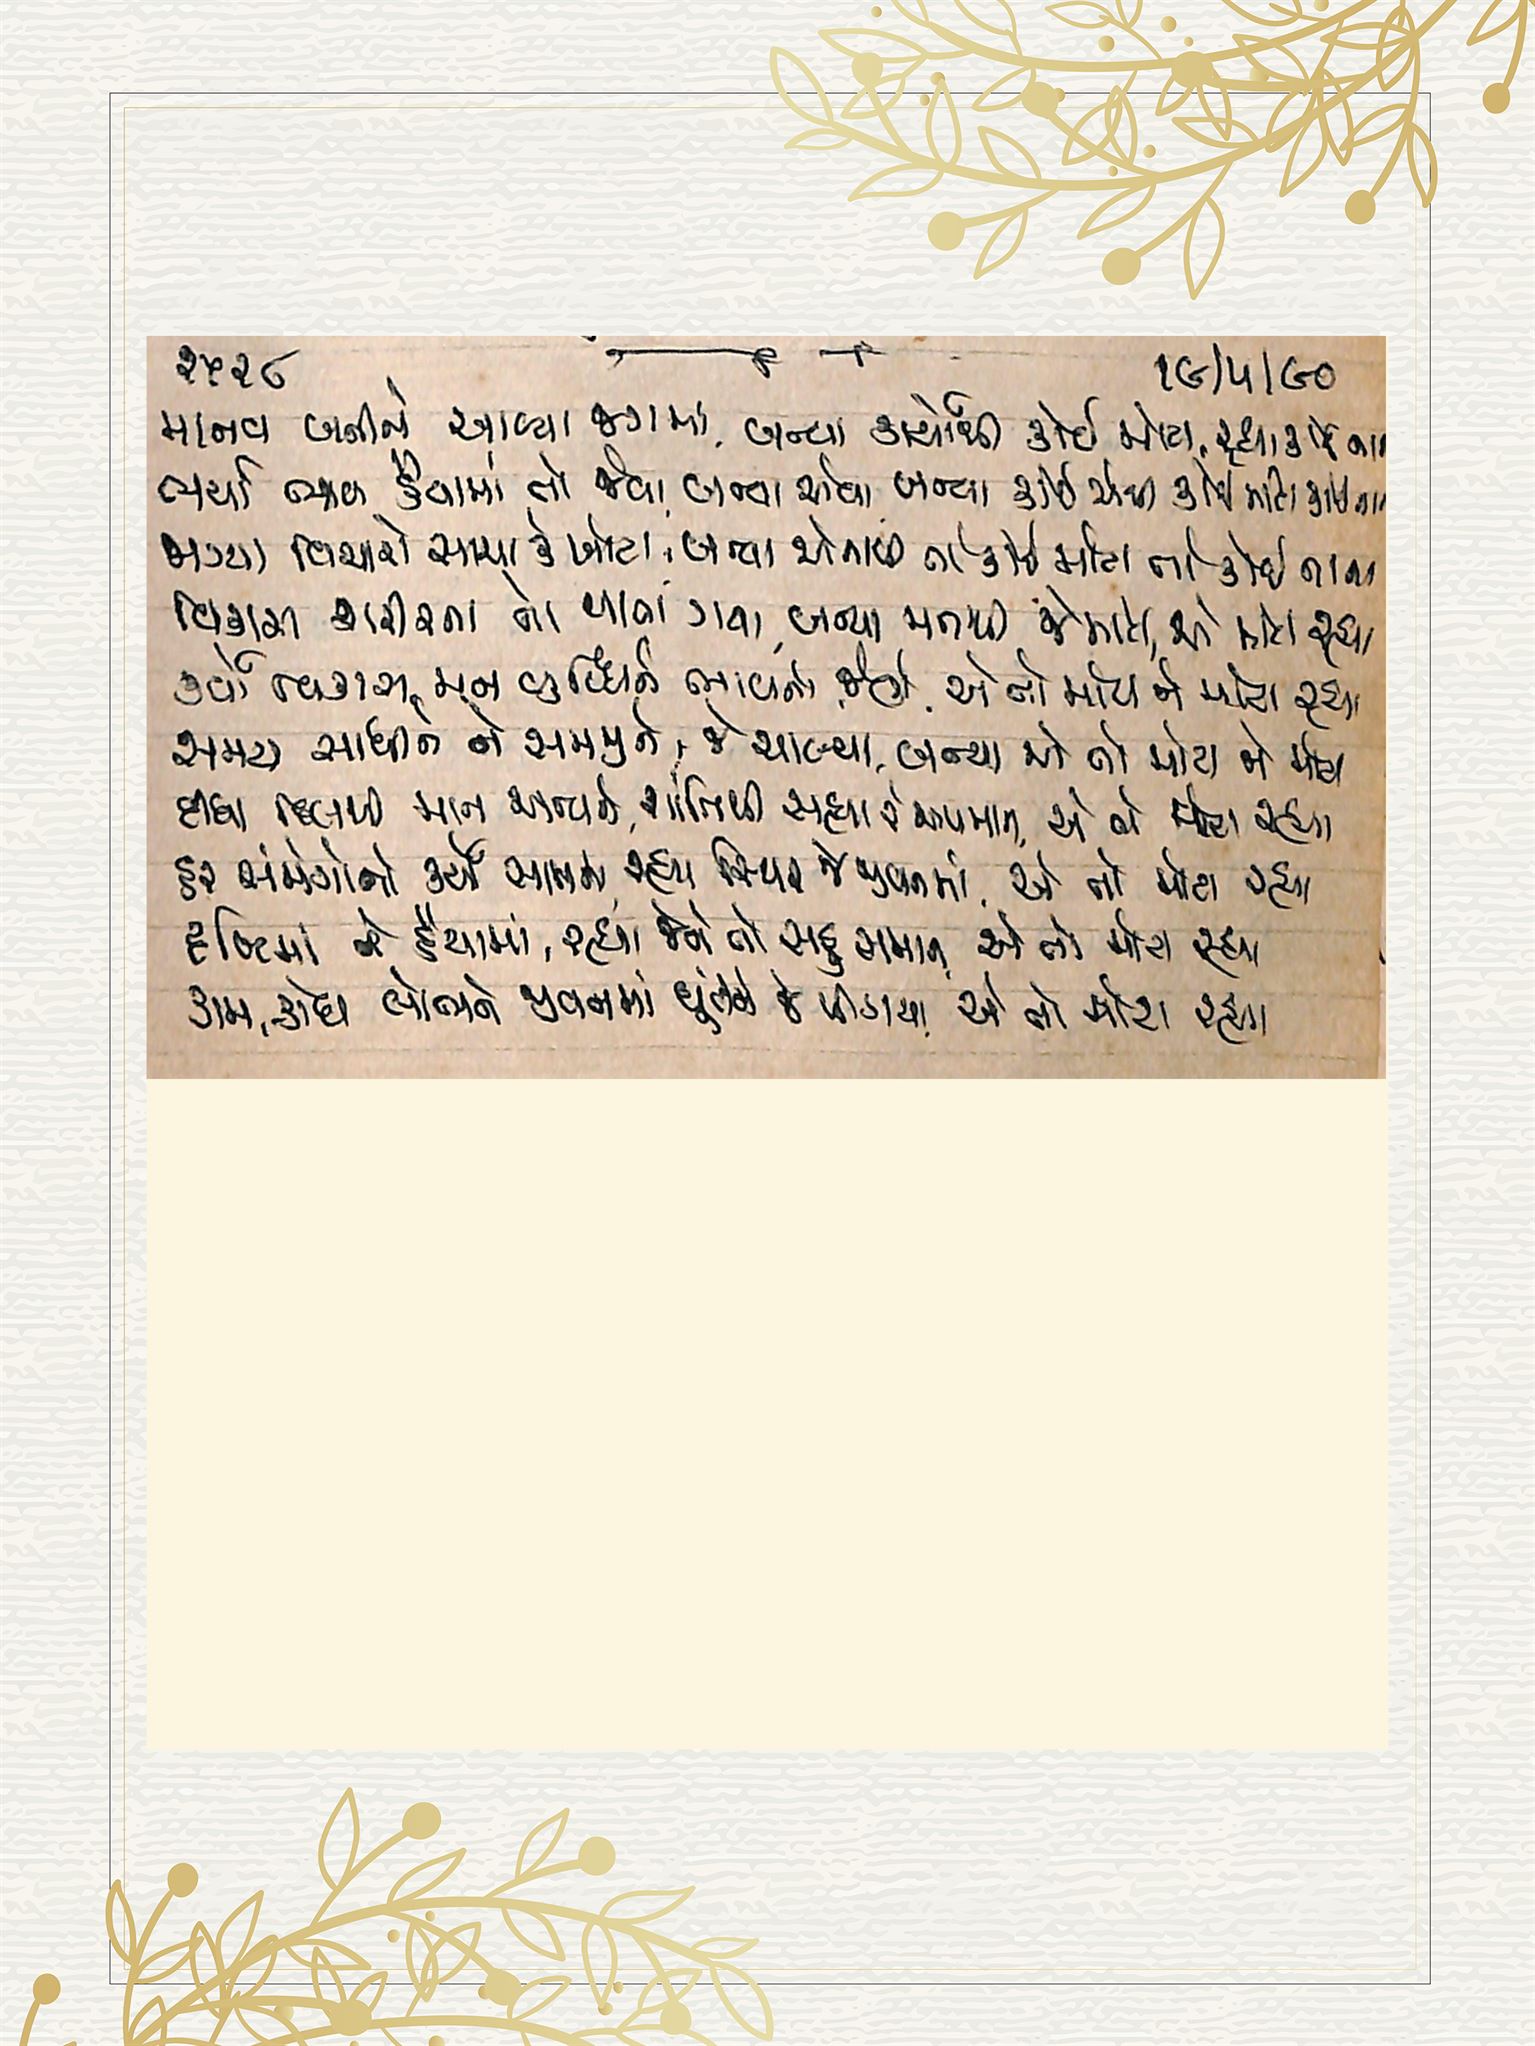 ૨૫૨૮ ૧૯/૫/૯૦
માનવ બનીને આવ્યા જગમાં, બન્યા કોઈ મોટા, રહ્યા કોઈ
ભર્યા ભાવ હૈયામાં તો જેવા, બન્યા એવા, બન્યા કોઈ એથી કોઈ મોટા કોઈ
જાગ્યા વિચારો સાચા કે ખોટા, બન્યા એનાથી તો કોઈ મોટા તો કોઈ નાના
વિકાસ શરીરના તો થાતા ગયા, બન્યા મનથી જે મોટા, એ મોટા રહ્યા
કર્યો વિકાસ, મન બુદ્ધિને ભાવનો જેણે, એ તો મોટા ને મોટા રહ્યા
સમય સાધીને ને સમજીને, જે ચાલ્યા, બન્યા એ તો મોટા ને મોટા
દીધા દિલથી માન અન્યને, શાંતિથી સહ્યા રે અપમાન, એ તો મોટા રહ્યા
હર સંજોગોનો કર્યો સામનો, રહ્યા સ્થિર જે જીવનમાં, એ તો મોટા રહ્યા
દૃષ્ટિમાં ને હૈયામાં, રહ્યા જેને તો સહુ સમાન, એ તો મોટા રહ્યા
કામ, ક્રોધ લોભને જીવનમાં જે પી ગયા, એ તો મોટા રહ્યા